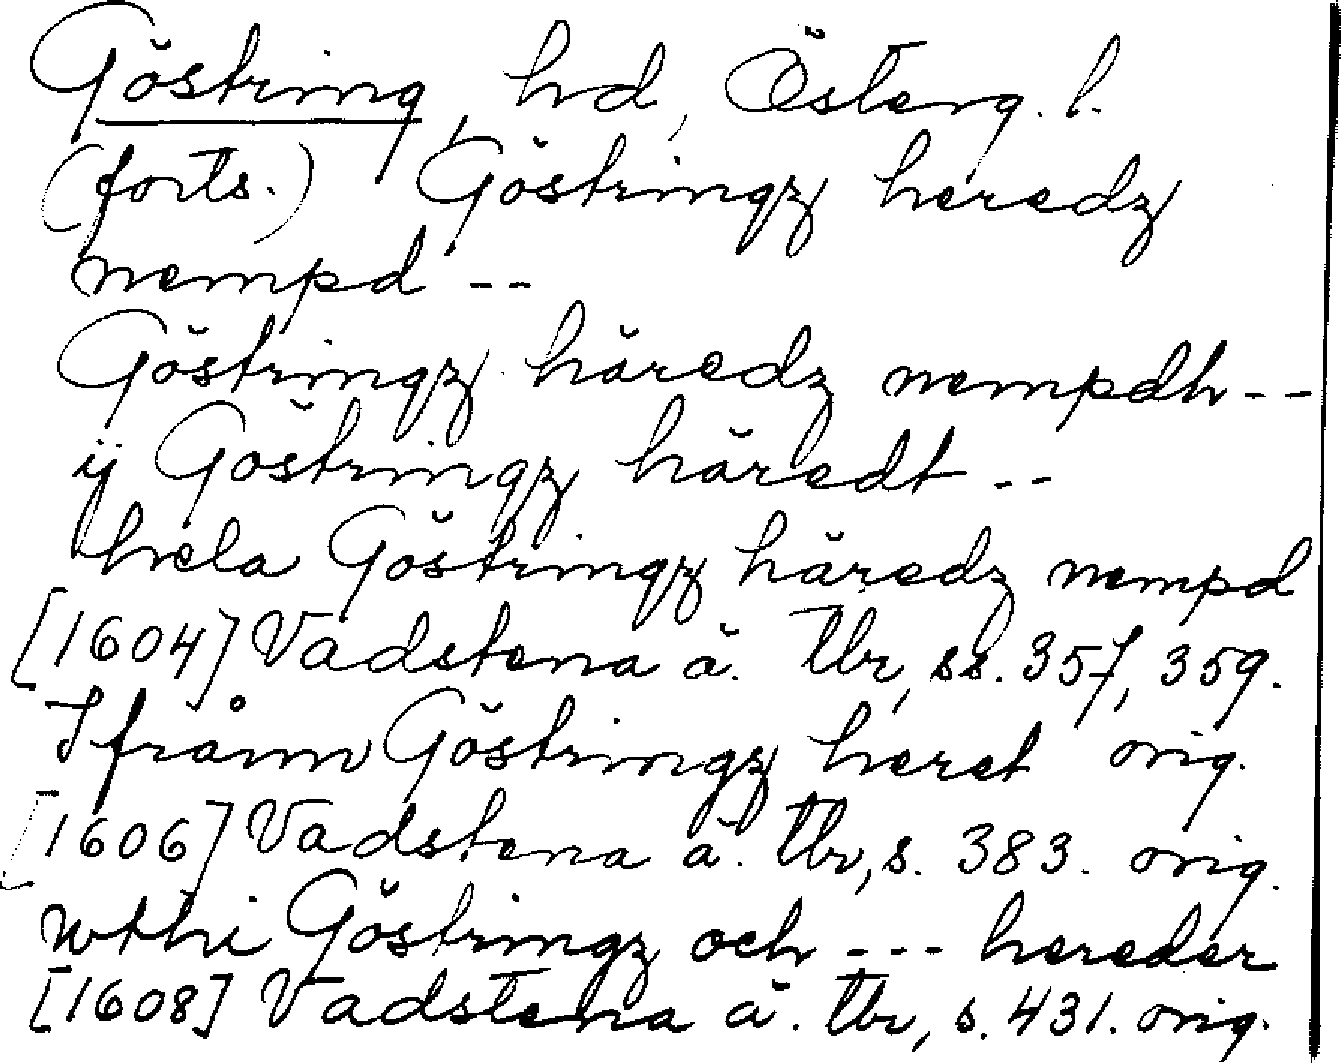 Göstring, hd, Österg. l.
(forts.) Göstringz heredz
nempd --
Göstringz häredz nempdh --
ij Göstringz häredt --
hela Göstringz häredz nempd
[1604] Vadstena ä. tbr, ss. 357, 359.
Ifrånn Göstringz heret orig.
[1606] Vadstena ä. tbr, s. 383. orig.
wthi Göstringz och --- hereder
[1608] Vadstena ä. tbr, s. 431. orig.